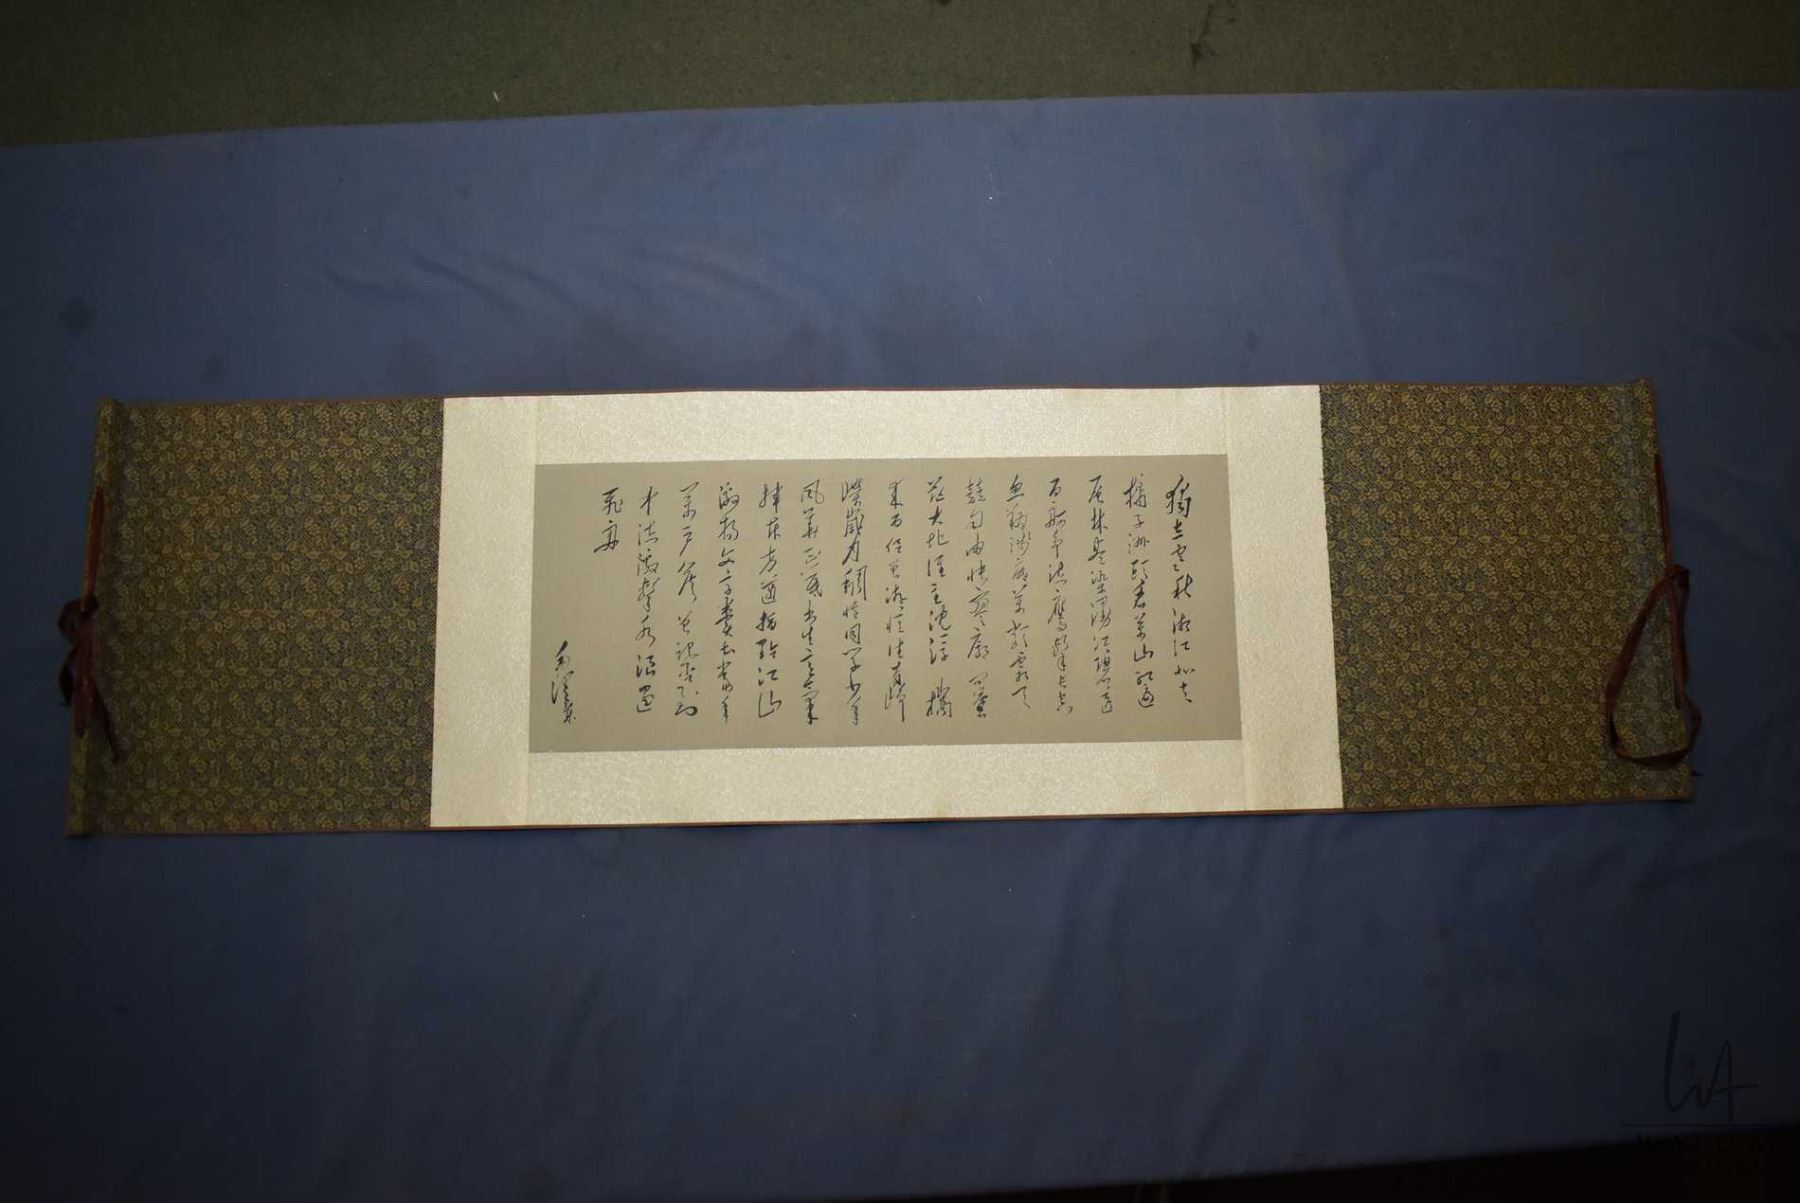 獨立寒秋湘江北去
橘子洲頭看萬山紅遍
層林盡染漫江碧透
百舸爭流鷹擊長空
魚翔淺底萬類霜天
競自由悵寥廓問蒼
茫大地誰主沈浮 攜
來百侶曾游憶往昔崢
嶸歲月稠恰同學少年
風華正茂書生意氣
揮斥方遒指點江山
激揚文字糞土當年
萬戶侯曾記否到
中流擊水浪遏
飛舟
毛澤東
LiA